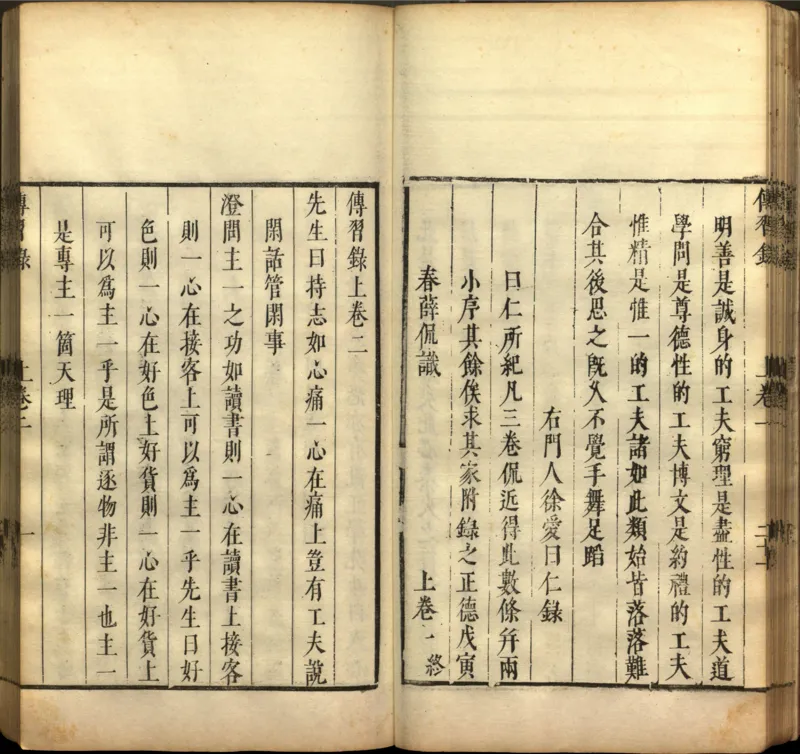 傳習錄 上卷一 二十一
明善是誠身的工夫窮理是盡性的工夫道
學問是尊德性的工夫博文是約禮的工夫
惟精是惟一的工夫諸如此類始皆落落難
合其後思之旣久不覺手舞足蹈
右門人徐愛曰仁錄
曰仁所紀凡三卷侃近得此數條幷兩
小序其餘俟求其家附錄之正德戊寅
春薛侃識
上卷一終
傳習錄上卷二
先生曰持志如心痛一心在痛上豈有工夫說
閑話管閑事
澄問主一之功如讀書則一心在讀書上接客
則一心在接客上可以爲主一乎先生曰好
色則一心在好色上好貨則一心在好貨上
可以爲主一乎是所謂逐物非主一也主一
是專主一箇天理
傳習錄 上卷二 一